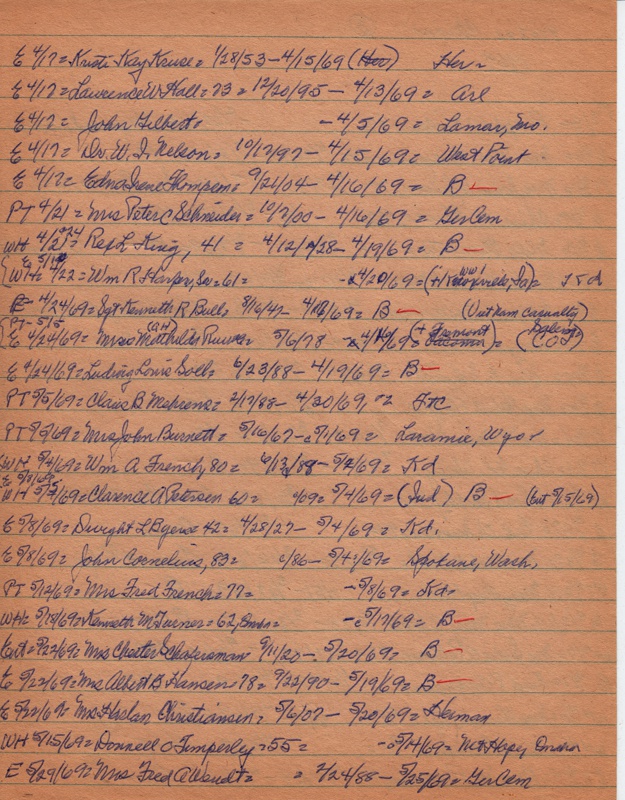 E 4/17 = Kristi Kay Kruse = 1/28/53 - 4/15/69 (Hoo) Her =
E 4/17 = Lawrence W. Hall = 73 = 12/20/95 - 4/13/69 = Arl
E 4/17 = John Gilbert = - 4/5/69 = Lamar, Mo.
E 4/17 = Dr. W. I. Nelson = 10/17/97 - 4/15/69 = West Point
E 4/17 = Edna Irene Thompson = 9/21/04 - 4/16/69 = B -
PT 4/21 = Mrs Peter C Schneider = 10/2/00 - 4/16/69 = GerCem
WH 4/21 = Rex L King, 41 = 4/12/28 - 4/19/69 = B -
WH = 4/22 = Wm R Harper, Sr = 61 = - 4/20/69 = Kd
E = 4/24/69 = Sgt Kenneth R Bull = 8/16/47 - /69 = B - (Viet Nam Casualty)
PT - 5/5
E 4/24/69 = Mrs Mathilda = 5/6/78 /69 = (+ Fremont
E 4/24/69 = Ludwig Louis Goll = 6/23/88 - 4/19/69 = B -
PT 5/5/69 = Claus B. Mehrens = 2/17/88 - 4/30/69, = FtC
PT 5/5/69 = Mrs John Burnett = 5/16/67 - 5/1/69 = Laramie, Wyo
WH 5/4/69 = Wm A French, 80 = - 5/2/69 = Kd
E 5/8/69
WH 5/5/69 = Clarence A Petersen 60 = /09 = 5/4/69 = (Ind) B - (Ent 5/15/69)
E 5/8/69 = Dwight L Byers = 42 = 4/28/27 - 5/4/69 = Kd.
E 5/8/69 = John Cornelius, 83 = /86 - 5/4/69 = Spokane, Wash.
PT 5/12/69 = Mrs Fred French = 77 = - 5/8/69 = Kd =
WH = 5/19/69 = Kenneth M Turner = 62, Omaha = - 5/17/69 = B -
Ent = 5/22/69 = Mrs Chester Schafersman 9/11/20 - 5/20/69 = B -
E 5/22/69 = Mrs Albert B Hansen = 78 = 9/22/90 - 5/19/69 = B -
E 5/22/69 = Mrs Harlan Christiansen = 5/6/07 - 5/20/69 = Herman
WH 5/15/69 = Donnell O Timperley = 55 = - 5/14/69 = Mt Hope, Omaha
E 5/29/69 = Mrs Fred A Wendt = = 2/24/88 - 5/25/69 = GerCem